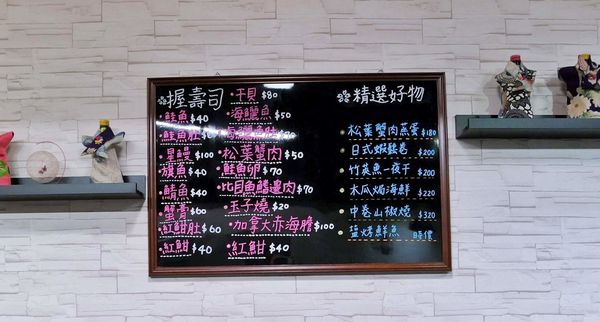 握壽司
鮭魚 $40
鮭魚肚 $50
星鰻 $100
旗魚 $40
鯖魚 $40
蟹膏 $60
紅魽肚 $60
紅魽 $40
干貝 $80
海鱺魚 $50
海鱺魚肚
松葉蟹肉 $50
鮭魚卵 $70
比目魚鰭邊肉 $70
玉子燒 $20
加拿大赤海膽 $100
紅魽 $40
精選好物
松葉蟹肉蒸蛋 $180
日式蝦鬆卷 $200
竹筴魚一夜干 $200
木瓜焗海鮮 $220
中卷山椒燒 $320
鹽烤鮮魚 時價